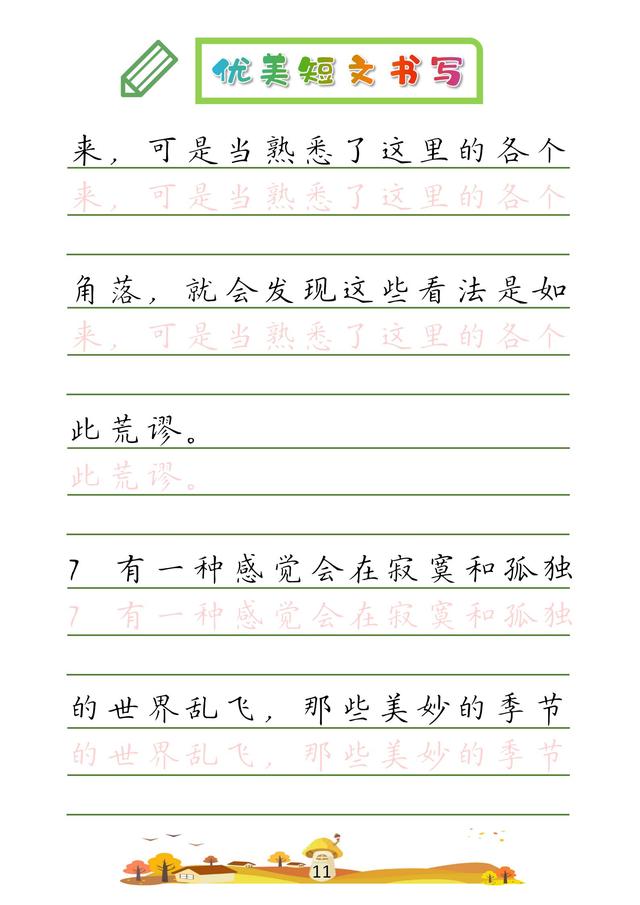 优美短文书写
来，可是当熟悉了这里的各个
来，可是当熟悉了这里的各个
角落，就会发现这些看法是如
来，可是当熟悉了这里的各个
此荒谬。
此荒谬。
7 有一种感觉会在寂寞和孤独
7 有一种感觉会在寂寞和孤独
的世界乱飞，那些美妙的季节
的世界乱飞，那些美妙的季节
11